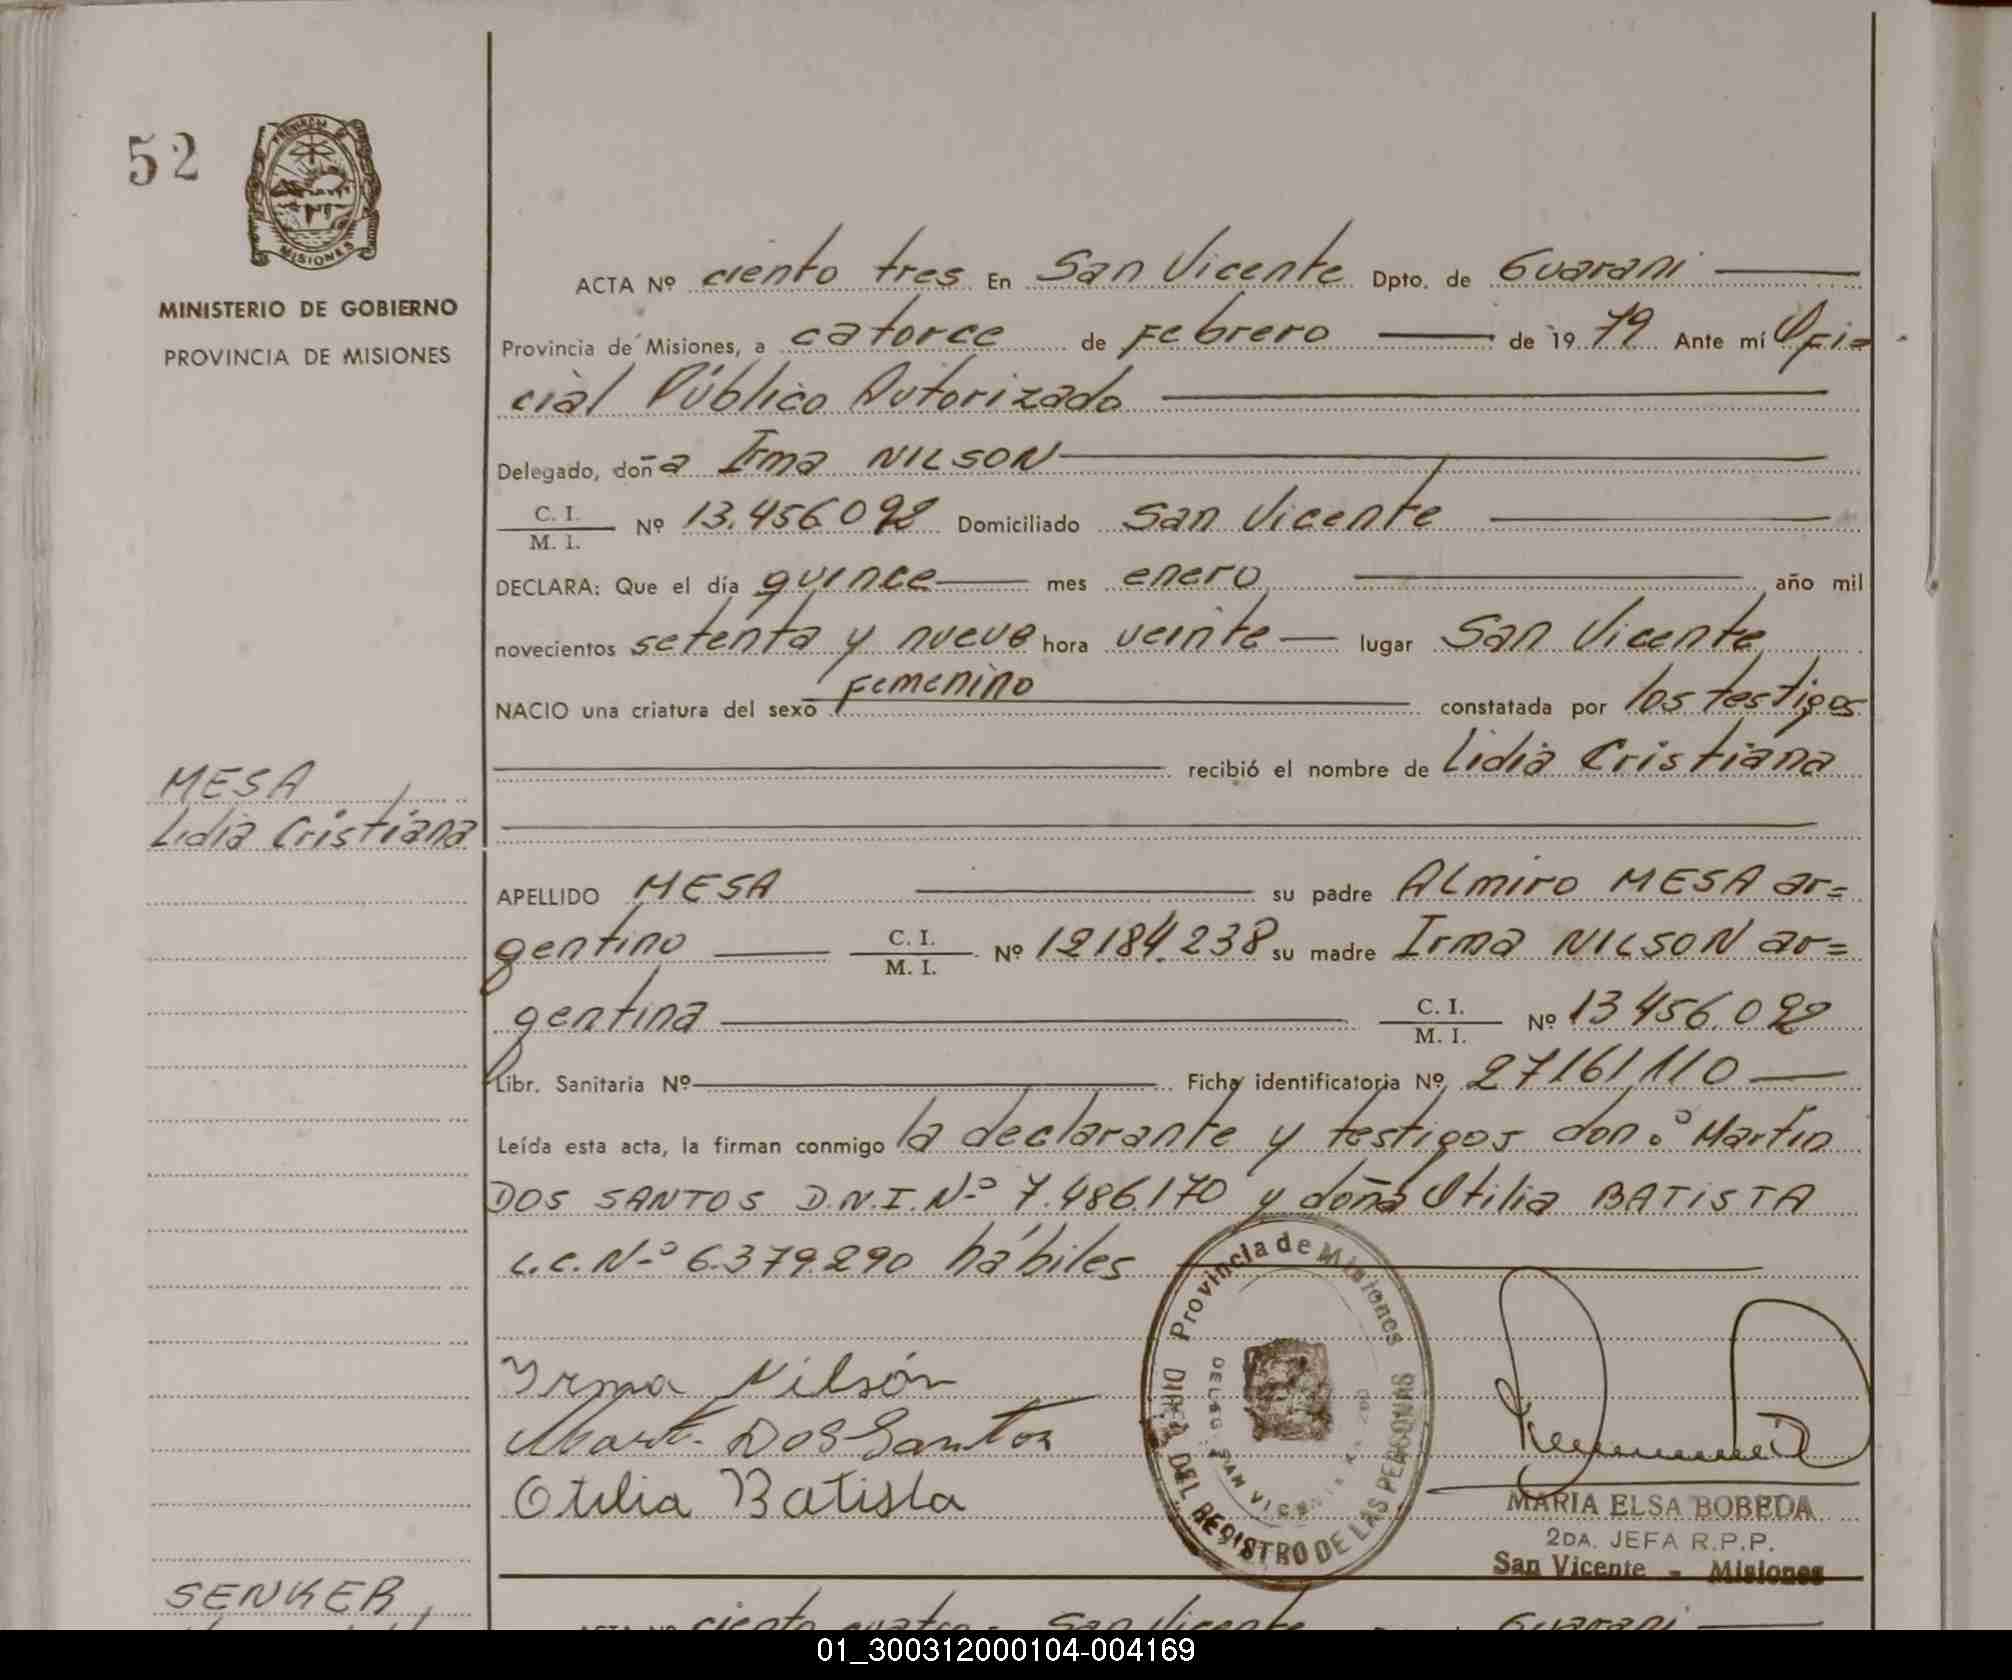 52
PROVINCIA DE
MISIONES
MINISTERIO DE GOBIERNO
PROVINCIA DE MISIONES
ACTA Nº ciento tres En San Vicente Dpto. de Guarani
Provincia de Misiones, a catorce de Febrero de 1979 Ante mí Ofi=
cial Público Autorizado
Delegado, doña Irma NILSON
C. I.
M. I.
Nº 13.456.092 Domiciliado San Vicente
DECLARA: Que el día quince mes enero año mil
novecientos setenta y nueve hora veinte lugar San Vicente
NACIO una criatura del sexo Femenino constatada por los testigos
recibió el nombre de Lidia Cristiana
MESA
Lidia Cristiana
APELLIDO MESA su padre ALmiro MESA ar=
gentino C. I. M. I. Nº 12184.238 su madre Irma NILSON ar=
gentina C. I. M. I. Nº 13456.092
Libr. Sanitaria Nº Ficha identificatoria Nº 27161110
Leída esta acta, la firman conmigo la declarante y testigos don: Martin
DOS SANTOS D.N.I.Nº 7.486.170 y doña Otilia BATISTA
L.C.Nº 6.379.290 hábiles
Irma Nilsón
Mart. Dos Santos
Otilia Batista
Provincia de Misiones
DIREC DEL REGISTRO DE LAS PERSONAS
DELEG. SAN VICENTE
MARIA ELSA BOBEDA
2DA. JEFA R.P.P.
San Vicente - Misiones
SENKER
ACTA Nº ciento cuatro San Vicente Guarani
01_300312000104-004169